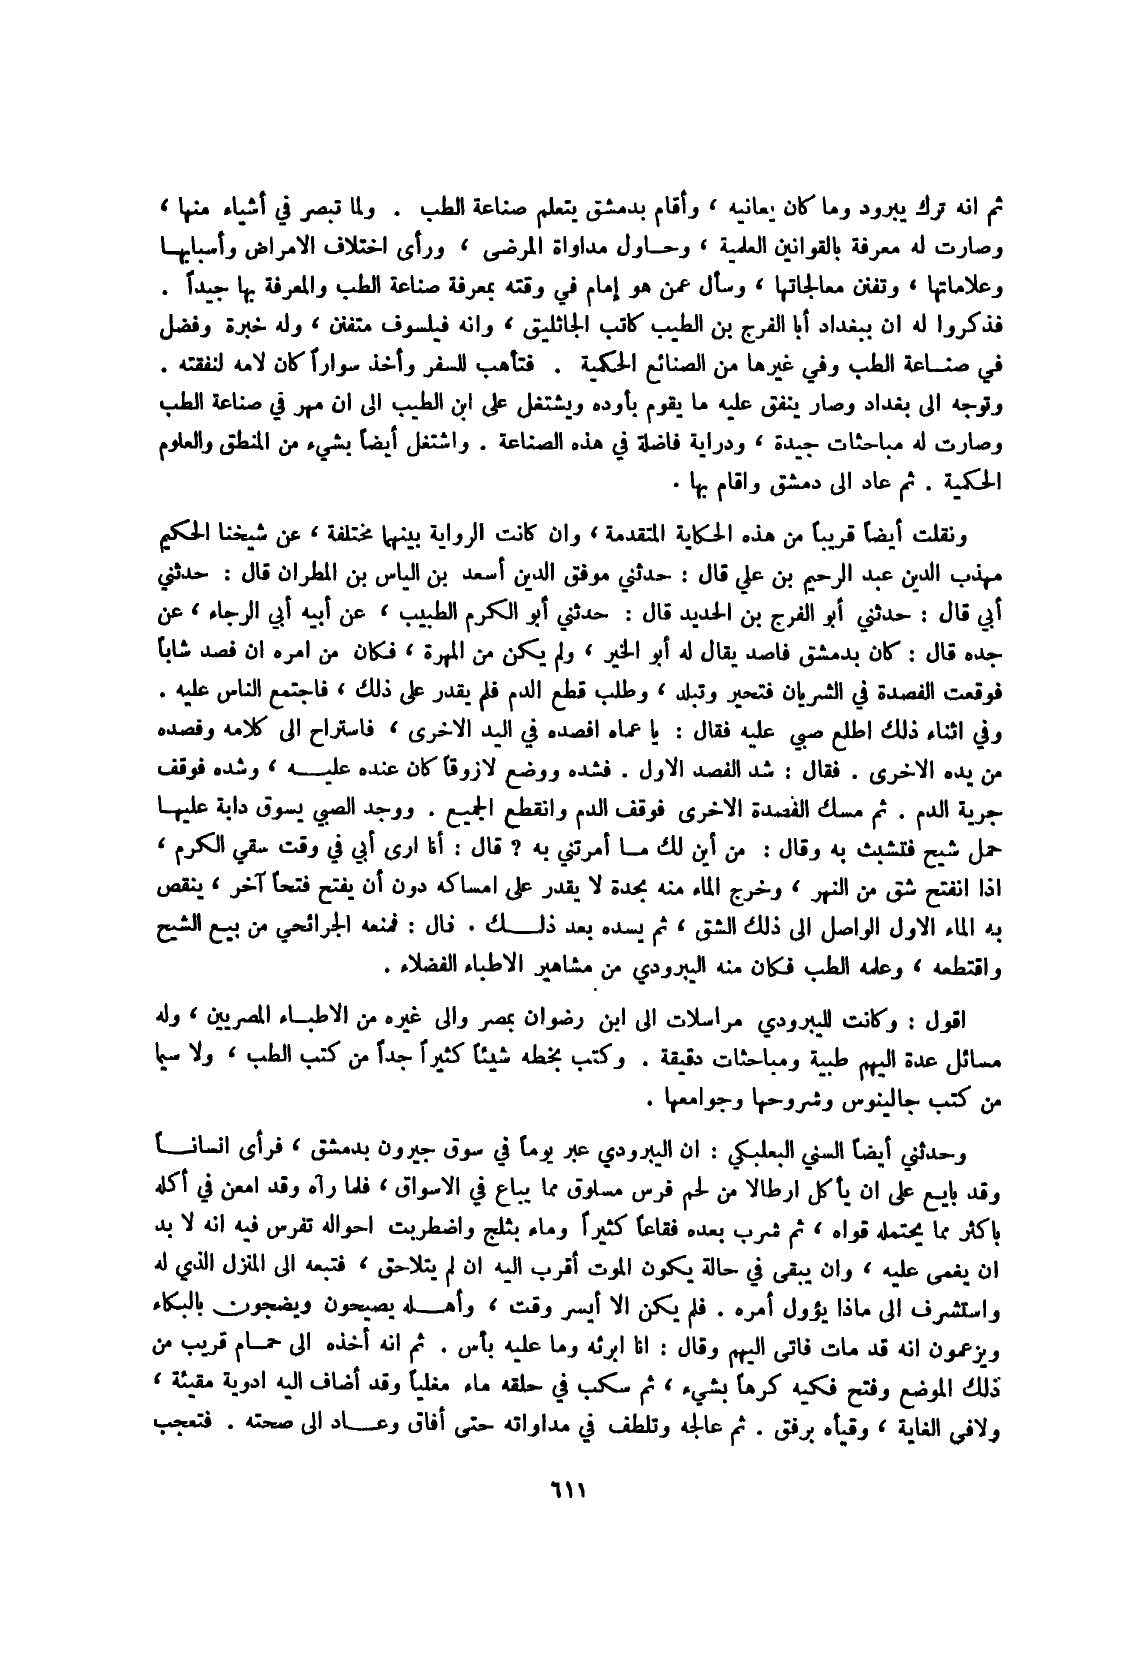 ثم انه ترك يبرود وما كان يعانيه ، وأقام بدمشق يتعلم صناعة الطب . ولما تبصر في أشياء منها ،
وصارت له معرفة بالقوانين العلمية ، وحاول مداواة المرضى ، ورأى اختلاف الامراض وأسبابها
وعلاماتها ، وتفنن معالجاتها ، وسأل عمن هو إمام في وقته بمعرفة صناعة الطب والمعرفة بها جيداً .
فذكروا له ان ببغداد أبا الفرج بن الطيب كاتب الجاثليق ، وانه فيلسوف متفنن ، وله خبرة وفضل
في صناعة الطب وفي غيرها من الصنائع الحكمية . فتأهب للسفر وأخذ سواراً كان لامه لنفقته .
وتوجه الى بغداد وصار ينفق عليه ما يقوم بأوده ويشتغل على ابن الطيب الى ان مهر في صناعة الطب
وصارت له مباحثات جيدة ، ودراية فاضلة في هذه الصناعة . واشتغل أيضاً بشيء من المنطق والعلوم
الحكمية . ثم عاد الى دمشق واقام بها .
ونقلت أيضاً قريباً من هذه الحكاية المتقدمة ، وان كانت الرواية بينهما مختلفة ، عن شيخنا الحكيم
مهذب الدين عبد الرحيم بن علي قال : حدثني موفق الدين أسعد بن الياس بن المطران قال : حدثني
أبي قال : حدثني أبو الفرج بن الحديد قال : حدثني أبو الكرم الطبيب ، عن أبيه أبي الرجاء ، عن
جده قال : كان بدمشق فاصد يقال له أبو الخير ، ولم يكن من المهرة ، فكان من امره ان فصد شاباً
فوقعت الفصدة في الشريان فتحير وتبلد ، وطلب قطع الدم فلم يقدر على ذلك ، فاجتمع الناس عليه .
وفي اثناء ذلك اطلع صبي عليه فقال : يا عماه افصده في اليد الاخرى ، فاستراح الى كلامه وفصده
من يده الاخرى . فقال : شد الفصد الاول . فشده ووضع لازوقاً كان عنده عليه ، وشده فوقف
جرية الدم . ثم مسك الفصدة الاخرى فوقف الدم وانقطع الجميع . ووجد الصبي يسوق دابة عليها
حمل شيح فتشبث به وقال : من أين لك ما أمرتني به ؟ قال : أنا ارى أبي في وقت سقي الكرم ،
اذا انفتح شق من النهر ، وخرج الماء منه بحدة لا يقدر على امساكه دون أن يفتح فتحاً آخر ، ينقص
به الماء الاول الواصل الى ذلك الشق ، ثم يسده بعد ذلك . قال : فمنعه الجرائحي من بيع الشيح
واقتطعه ، وعلمه الطب فكان منه اليبرودي من مشاهير الاطباء الفضلاء .
اقول : وكانت لليبرودي مراسلات الى ابن رضوان بمصر والى غيره من الاطباء المصريين ، وله
مسائل عدة اليهم طبية ومباحثات دقيقة . وكتب بخطه شيئاً كثيراً جداً من كتب الطب ، ولا سيما
من كتب جالينوس وشروحها وجوامعها .
وحدثني أيضاً السني البعلبكي : ان اليبرودي عبر يوماً في سوق جيرون بدمشق ، فرأى انساناً
وقد بايع على ان يأكل ارطالا من لحم فرس مسلوق مما يباع في الاسواق ، فلما رآه وقد امعن في أكله
باكثر مما يحتمله قواه ، ثم شرب بعده فقاعاً كثيراً وماء بثلج واضطربت احواله تفرس فيه انه لا بد
ان يغمى عليه ، وان يبقى في حالة يكون الموت أقرب اليه ان لم يتلاحق ، فتبعه الى المنزل الذي له
واستشرف الى ماذا يؤول أمره . فلم يكن الا أيسر وقت ، وأهله يصيحون ويضجون بالبكاء
ويزعمون انه قد مات فاتى اليهم وقال : انا ابرئه وما عليه بأس . ثم انه أخذه الى حمام قريب من
ذلك الموضع وفتح فكيه كرهاً بشيء ، ثم سكب في حلقه ماء مغلياً وقد أضاف اليه ادوية مقيئة ،
ولافي الغاية ، وقيأه برفق . ثم عالجه وتلطف في مداواته حتى أفاق وعاد الى صحته . فتعجب
٦١١